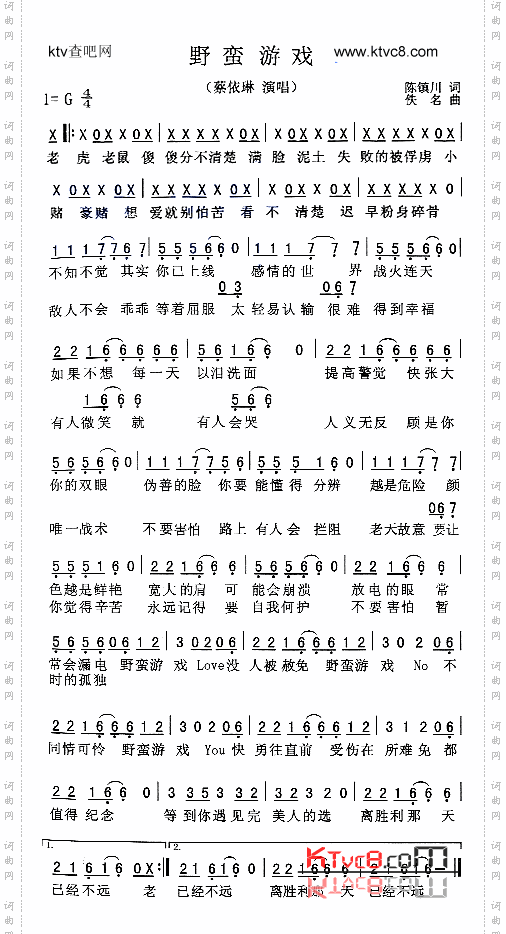 ktv查吧网
野蛮游戏
www.ktvc8.com
（蔡依琳 演唱）
陈镇川 词
佚 名 曲
1= G 4/4
X |: X0X0 0X | XXX XX | XXX XXX | XXX XX0X |
老 虎 老鼠 傻 傻分不清楚 满 脸 泥土 失 败的被俘虏 小
X0X0 0X | XXX XX | XXX XXX | XXX XX0
赌 豪赌 想 爱就别怕苦 看 不 清楚 迟 早粉身碎骨
1 1 1 7 7 6 7 | 5 5 5 6 6 0 | 1 1 1 7 7 7 | 5 5 5 6 6 0
不知不觉 其实 你已上线 感情的世 界 战火连天
0 3 0 6 7
敌人不会 乖乖 等着屈服 太 轻易认输 很难 得到幸福
2 2 1 6 6 6 6 6 | 5 6 1 6 6 0 | 2 2 1 6 6 6 6 6 | 5 6 5 6 6
如果不想 每一天 以泪洗面 提高警觉 快张大
1 6 6 6 5 6 6
有人微笑 就 有人会哭 人义无反 顾是你
5 6 5 6 6 0 | 1 1 1 7 7 5 6 | 5 5 5 1 6 0 | 1 1 1 7 7 7
你的双眼 伪善的脸 你要 能懂得 分辨 越是危险 颜
0 6 7
唯一战术 不要害怕 路上 有人会 拦阻 老大故意 要让
5 5 5 1 6 0 | 2 2 1 6 6 6 | 5 6 5 6 6 0 | 2 2 1 6 6 6
色越是鲜艳 宽人的肩 可 能会崩溃 放电的眼 常
你觉得辛苦 永远记得 要 自我何护 不要害怕 暂
5 6 5 6 0 6 1 2 | 3 0 2 0 6 | 2 2 1 6 6 6 1 2 | 3 0 2 0 6
常会漏电 野蛮游 戏 Love没 人被赦免 野蛮游 戏 No 不
时的孤独
2 2 1 6 6 6 1 2 | 3 0 2 0 6 | 2 2 1 6 6 6 1 2 | 3 2 1 0 6
同情可怜 野蛮游 戏 You 快 勇往直前 受伤在 所难免 都
2 2 1 6 6 0 | 3 3 3 5 3 3 2 | 3 3 2 3 3 2 | 3 2 3 5 3 3 2
值得 纪念 等到你遇见完 美人的选 离胜利那 天
1. 2.
2 1 6 1 6 0X :| 2 1 6 1 6 0 | 2 2 1 6 6 6 6 | 2 1 6 1 6
KTvc8.com
已经不远 老 已经不远 离胜利那 天 已经不远
词曲网